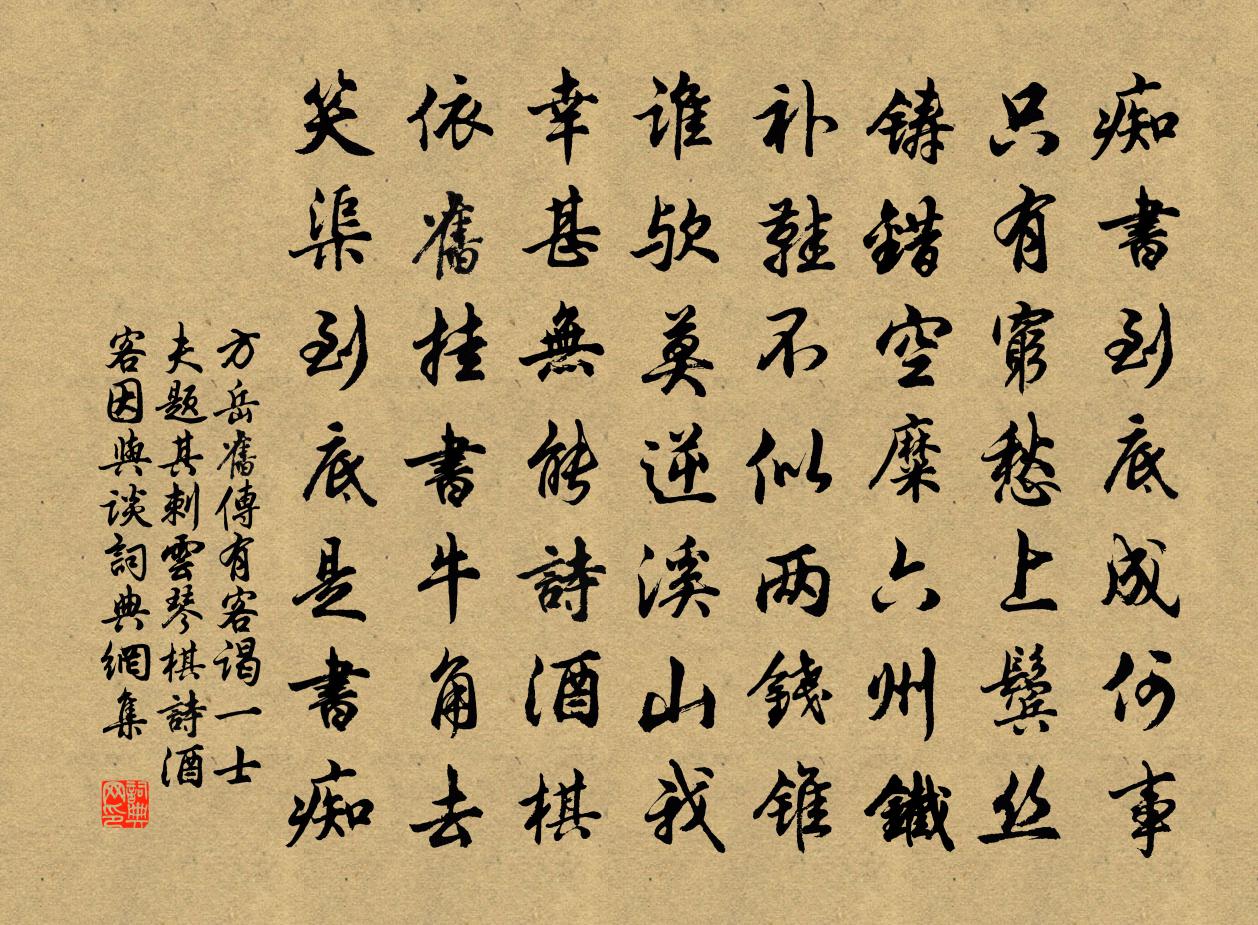 痴書到底成何事
只有窮愁上鬢丝
鑄錯空糜六州鐵
补鞋不似两錢錐
谁欤莫逆溪山我
幸甚無能詩酒棋
依舊挂書牛角去
笑渠到底是書痴
方岳舊傳有客谒一士
夫題其刺雲琴棋詩酒
客因與谈詞典網集
詞典网印